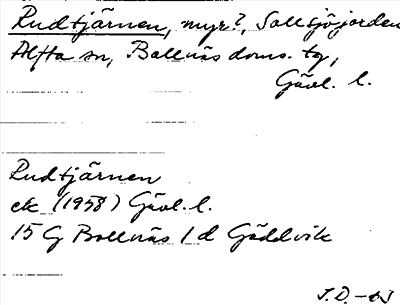 Rudtjärnen, myr?, Sallsjöjorden
Alfta sn, Bollnäs doms. tg,
Gävl. l.
Rudtjärnen
ek (1958) Gävl. l.
15 G Bollnäs 1 d Gäddvik
J.D. -63